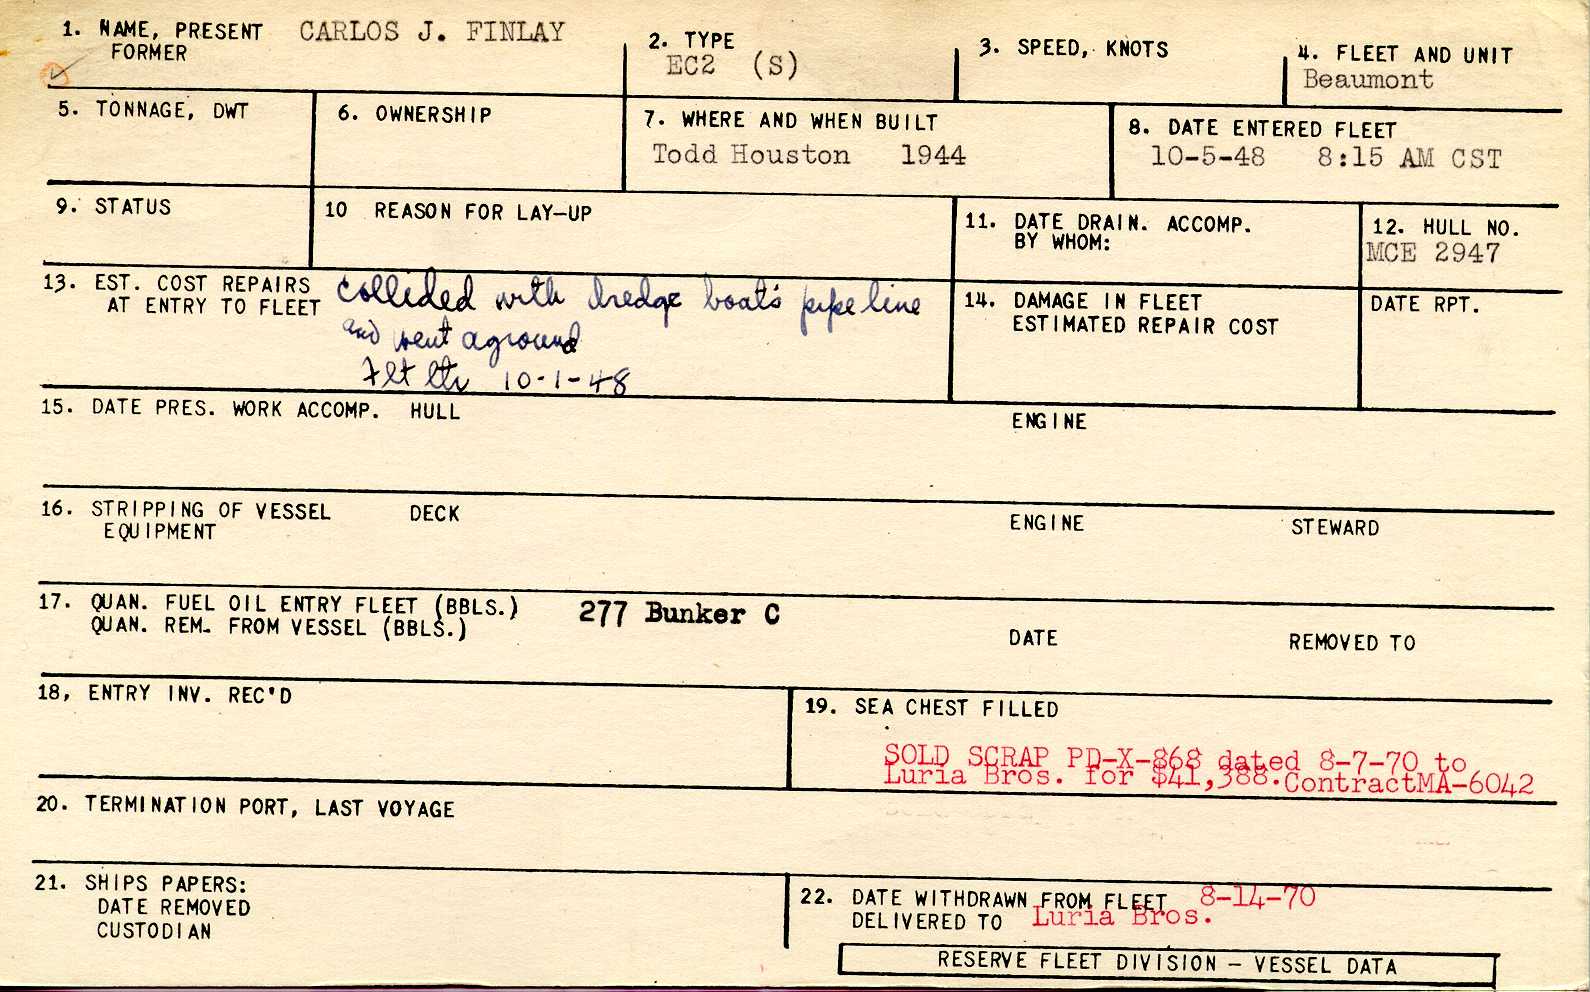 1. NAME, PRESENT CARLOS J. FINLAY
FORMER
2. TYPE
EC2 (S)
3. SPEED, KNOTS
4. FLEET AND UNIT
Beaumont
5. TONNAGE, DWT
6. OWNERSHIP
7. WHERE AND WHEN BUILT
Todd Houston 1944
8. DATE ENTERED FLEET
10-5-48 8:15 AM CST
9. STATUS
10 REASON FOR LAY-UP
11. DATE DRAIN. ACCOMP.
BY WHOM:
12. HULL NO.
MCE 2947
13. EST. COST REPAIRS
AT ENTRY TO FLEET
collided with dredge boat's pipe line
and went aground
Flt ltr 10-1-48
14. DAMAGE IN FLEET
ESTIMATED REPAIR COST
DATE RPT.
15. DATE PRES. WORK ACCOMP. HULL
ENGINE
16. STRIPPING OF VESSEL DECK
EQUIPMENT
ENGINE
STEWARD
17. QUAN. FUEL OIL ENTRY FLEET (BBLS.) 277 Bunker C
QUAN. REM. FROM VESSEL (BBLS.)
DATE
REMOVED TO
18, ENTRY INV. REC'D
19. SEA CHEST FILLED
SOLD SCRAP PD-X-868 dated 8-7-70 to
Luria Bros. for $41,388.ContractMA-6042
20. TERMINATION PORT, LAST VOYAGE
21. SHIPS PAPERS:
DATE REMOVED
CUSTODIAN
22. DATE WITHDRAWN FROM FLEET 8-14-70
DELIVERED TO Luria Bros.
RESERVE FLEET DIVISION - VESSEL DATA